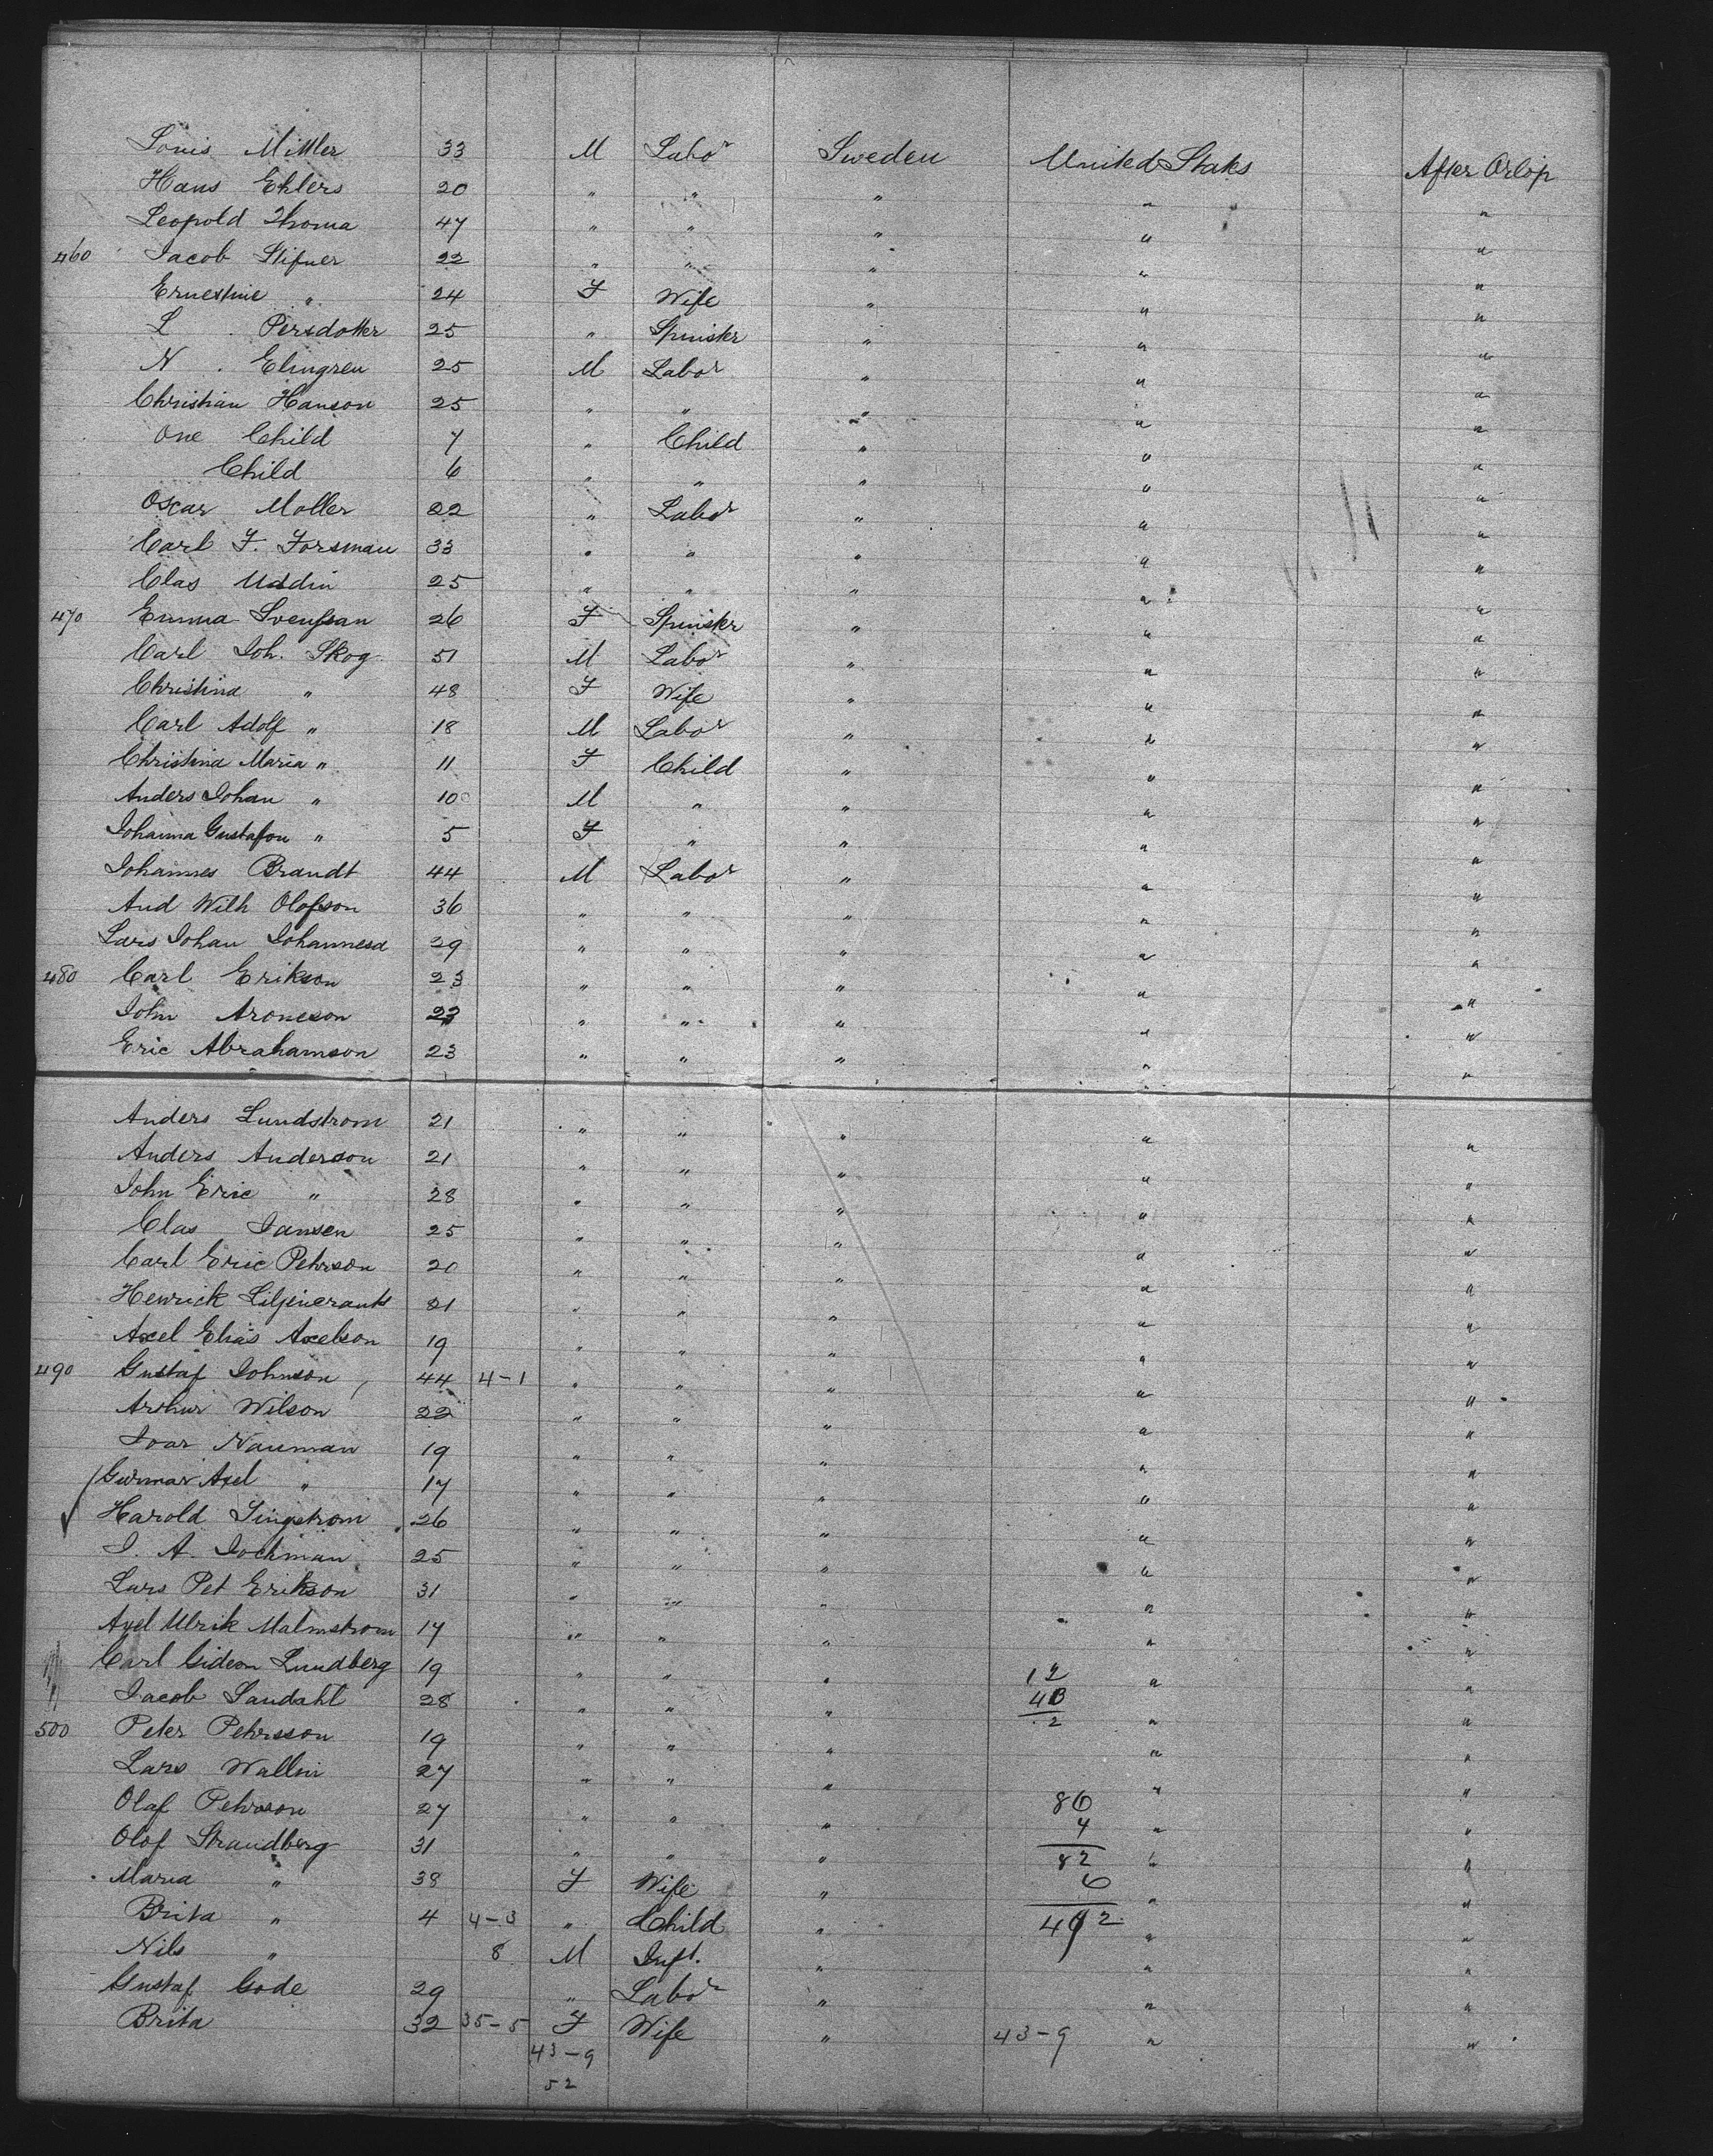 Louis Miller 33 M Labor Sweden United States After Orlop
Hans Ehlers 20 " " " " "
Leopold Thoma 47 " " " " "
460 Jacob Stifner 22 " " " " "
Ernestine " 24 F Wife " " "
L . Persdotter 25 " Spinster " " "
N . Elmgren 25 M Labor " " "
Christian Hanson 25 " " " " "
One Child 7 " Child " " "
Child 6 " " " " "
Oscar Moller 22 " Labor " " "
Carl F. Forsman 33 " " " " "
Clas 25 " " " " "
470 Emma Svensson 26 F Spinster " " "
Carl Joh. Skog 51 M Labor " " "
Christina " 48 F Wife " " "
Carl Adolf " 18 M Labor " " "
Christina Maria " 11 F Child " " "
Anders Johan " 10 M " " " "
Johanna " 5 F " " " "
Johannes Brandt 44 M Labor " " "
And Wilh Olofson 36 " " " " "
Lars Johan Johannesd 29 " " " " "
480 Carl Erikson 23 " " " " "
John Aroneson 23 " " " " "
Eric Abrahamson 23 " " " " "
Anders Lundstrom 21 " " " " "
Anders Anderson 21 " " " " "
John Eric " 28 " " " " "
Clas Jansen 25 " " " " "
Carl Eric Pehrson 20 " " " " "
Henrick 21 " " " " "
Axel Elias Axelson 19 " " " " "
490 Gustaf Johnson 44 4-1 " " " " "
Arthur Wilson 22 " " " " "
Ivar Nauman 19 " " " " "
Gunnar Axel " 17 " " " " "
Harold 26 " " " " "
J. A. Jochman 25 " " " " "
Lars Pet Erikson 31 " " " " "
Axel Ulrik Malmstrom 17 " " " " "
Carl Gideon Lundberg 19 " " " 12 " "
Jacob Sandahl 28 " " " " "
500 Peter Pehrsson 19 " " " 2 " "
Lars Wallin 27 " " " " "
Olaf Pehrson 27 " " " " "
Olof Strandberg 31 " " " 82 " "
Maria " 38 F Wife " 6 " "
Brita " 4 4-3 " Child " " "
Nils " 8 M Inft. " " "
Gustaf Gode 29 " Labor " " "
Brita 32 35-5 F Wife " 43-9 " "
43-9
52